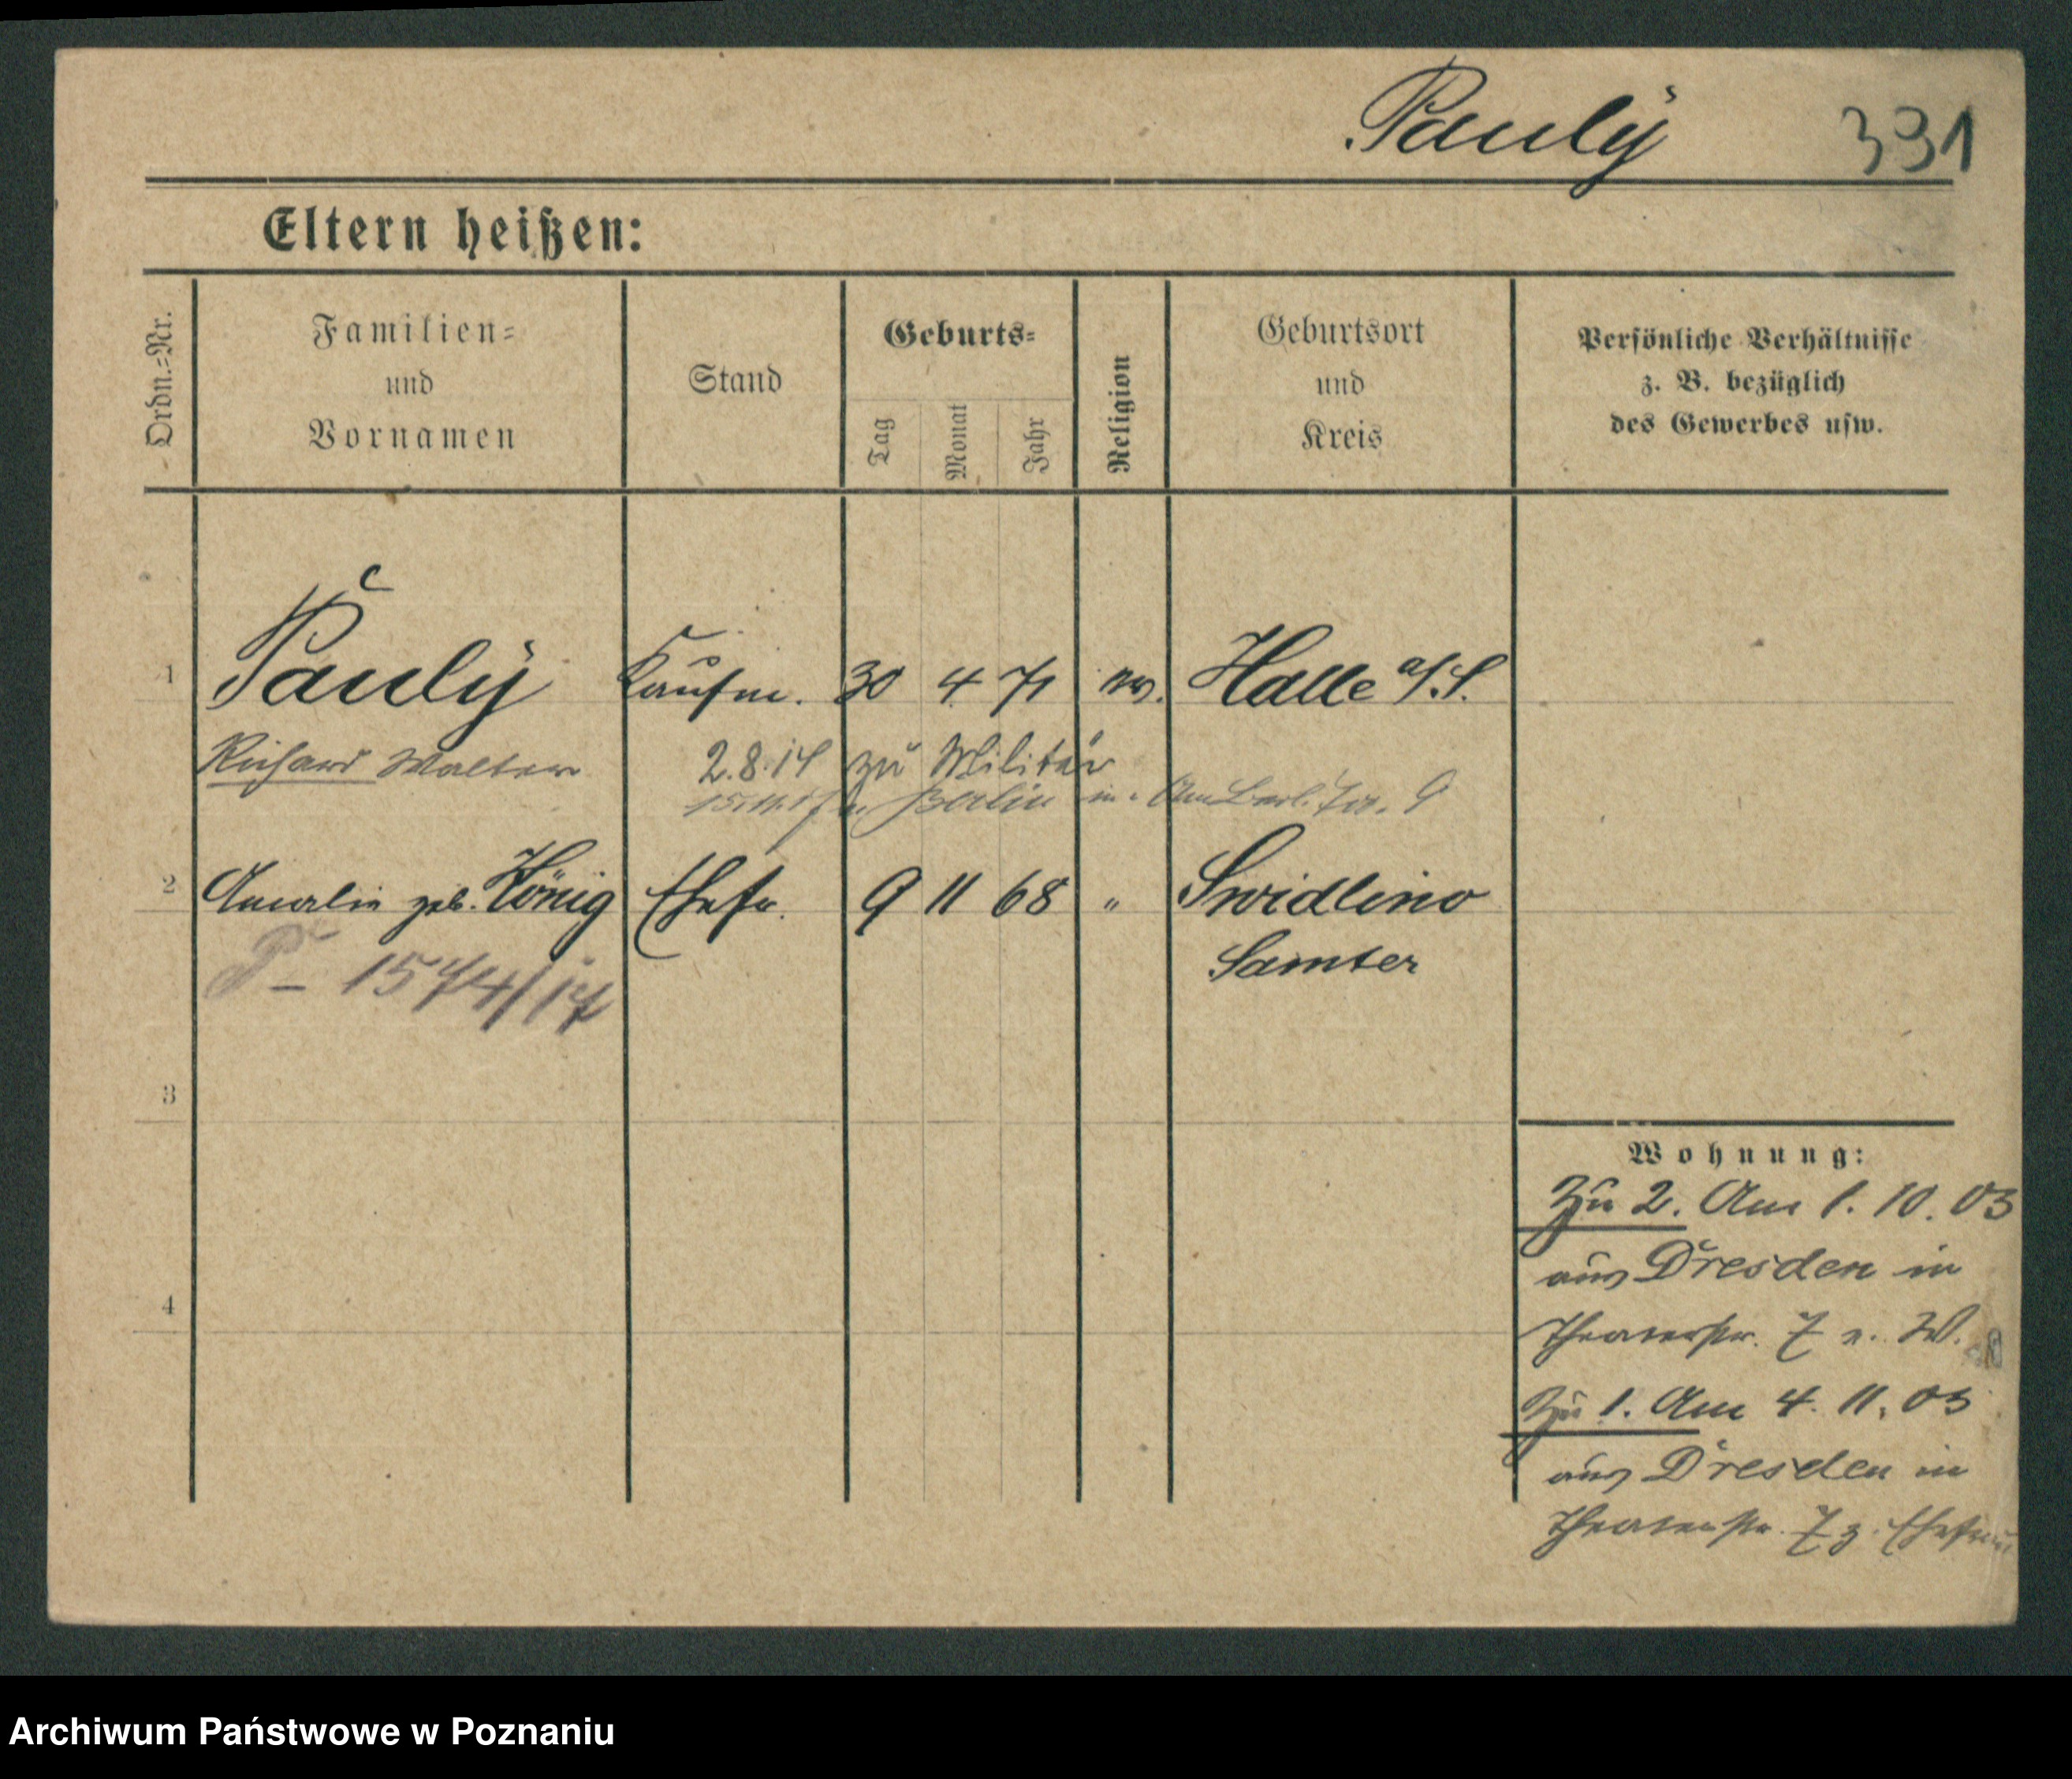 Pauly 331
Eltern heißen:
Ordn.=Nr.
Familien=
und
Vornamen
Stand
Geburts=
Tag
Monat
Jahr
Religion
Geburtsort
und
Kreis
Persönliche Verhältnisse
z. B. bezüglich
des Gewerbes usw.
1 Pauly Kaufm. 30 4 71 ev. Halle a/S.
Richard Walter 2.8.14 zu Militär
Berlin
2 Amalie geb. König Ehefr. 9 11 68 " Swidlino
Samter
P- 1574/17
3
4
Wohnung:
Zu 2. Am 1. 10. 03
aus Dresden in
Theaterstr. 7 e. W.
Zu 1. Am 4. 11. 03
aus Dresden in
Theaterstr. 7 z. Ehefrau
Archiwum Państwowe w Poznaniu